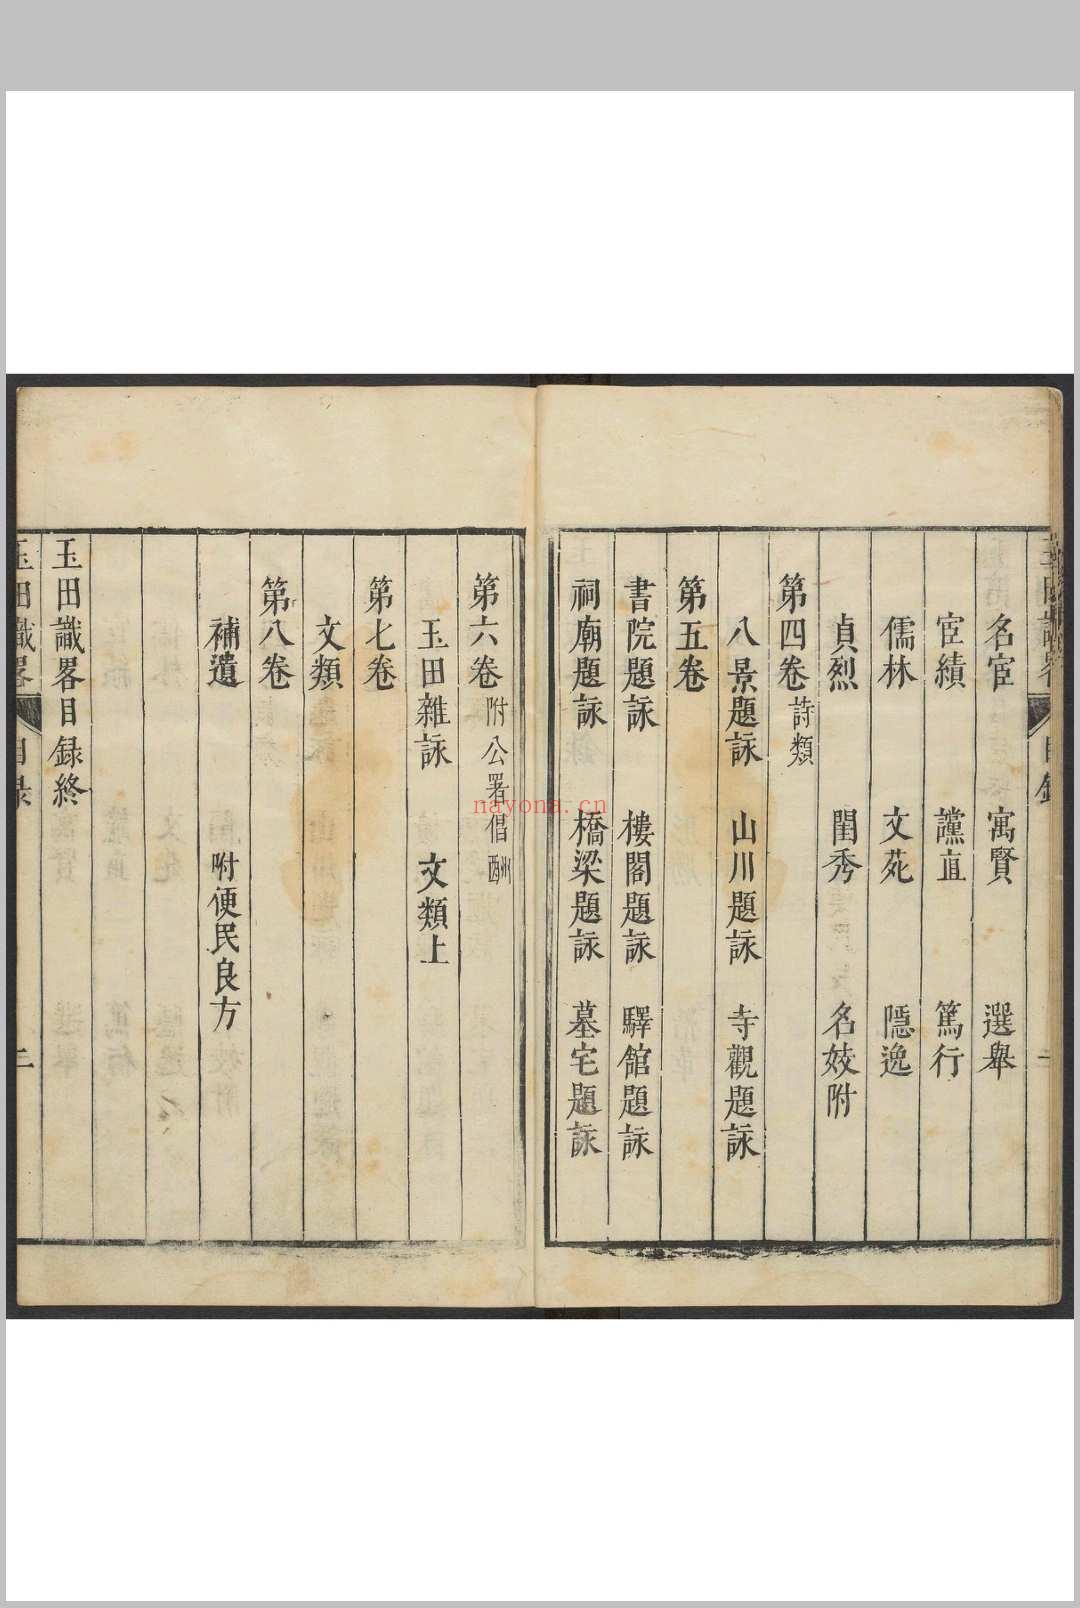 名宦　寓賢　選舉
宦績　讜直　篤行
儒林　文苑　隱逸
貞烈　閨秀　名妓附
第四卷 詩類
八景題詠　山川題詠　寺觀題詠
第五卷
書院題詠　樓閣題詠　驛館題詠
祠廟題詠　橋梁題詠　墓宅題詠
第六卷 附公署倡酬
玉田雜詠　文類上
第七卷
文類
第八卷
補遺　附便民良方
玉田識畧目録終
玉田識畧　目录　二
nayona.cn